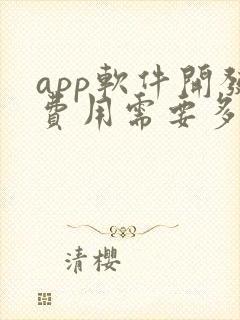 app軟件開發
費用需要多
清櫻